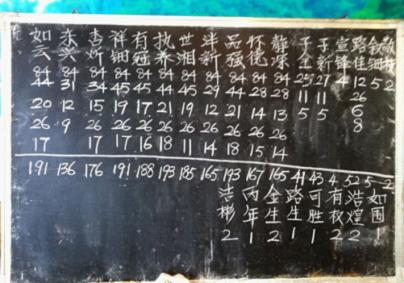 如云 东兴 杏忻 祥钿 有冠 执养 世湘 沣新 品强 怀德 静深 子全 子新 宣锋 路佳 钦细
84 84 84 84 84 84 84 84 84 84 84 25 27 4 12 5 2
44 31 34 45 45 44 45 29 44 28 28 11 11 26
20 12 15 19 17 21 19 12 21 14 13 5 5 6
26 9 26 26 26 26 26 26 26 26 26 8
17 17 17 16 18 11 14 18 15 14
191 136 176 191 188 193 185 165 193 167 165 41 43 4 52 5 2
浩彬 丙年 金生 路生 可胜 有权 浩煌 如国
2 1 2 1 1 2 2 1